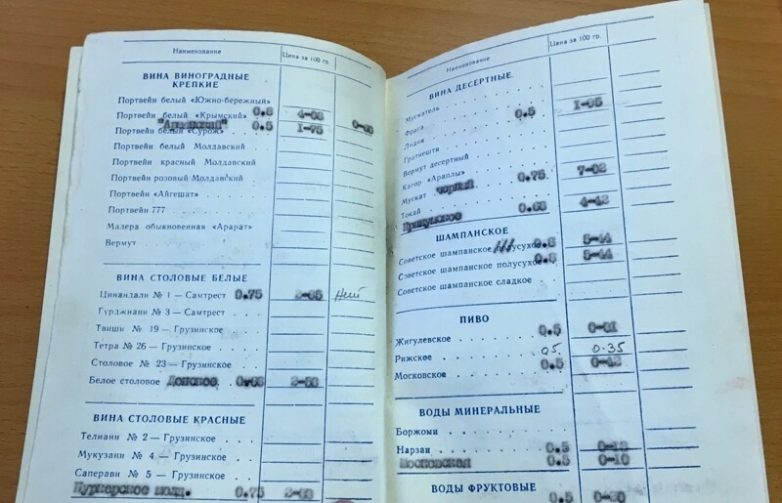 Наименование Цена за 100 гр.
ВИНА ВИНОГРАДНЫЕ
КРЕПКИЕ
Портвейн белый «Южно-бережный»
Портвейн белый «Крымский» 0.5
Портвейн белый «Сурож» 0.5 1-75
Портвейн белый Молдавский
Портвейн красный Молдавский
Портвейн розовый Молдавский
Портвейн «Айгешат»
Портвейн 777
Мадера обыкновенная «Арарат»
Вермут
ВИНА СТОЛОВЫЕ БЕЛЫЕ
Цинандали № 1 — Самтрест 0.75 нет
Гурджиани № 3 — Самтрест
Твиши № 19 — Грузинское
Тетра № 26 — Грузинское
Столовое № 23 — Грузинское
Белое столовое Донское
ВИНА СТОЛОВЫЕ КРАСНЫЕ
Телиани № 2 — Грузинское
Мукузани № 4 — Грузинское
Саперави № 5 — Грузинское
0.75
Наименование Цена за 100 гр.
ВИНА ДЕСЕРТНЫЕ
Мускатель 0.5
Фрага
Лидия
Гратиешти
Вермут десертный
Кагор «Араплы» 0.75 7-02
Мускат черный
Токай 0.65
ШАМПАНСКОЕ
Советское шампанское 5-44
Советское шампанское полусухое 5-44
Советское шампанское сладкое
ПИВО
Жигулевское 0.5
Рижское 05 0-35
Московское 0.5
ВОДЫ МИНЕРАЛЬНЫЕ
Боржоми
Нарзан 0.5
Московская 0.5 0-10
ВОДЫ ФРУКТОВЫЕ
0.5